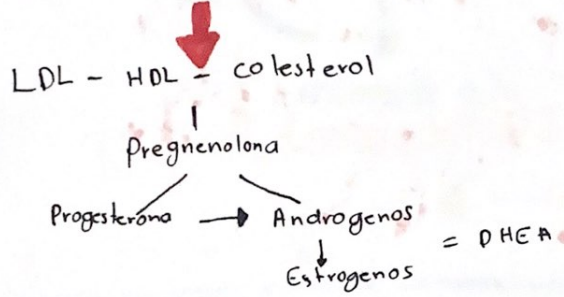 LDL - HDL - colesterol
Pregnenolona
Progesterona → Androgenos
= DHEA
↓
Estrogenos